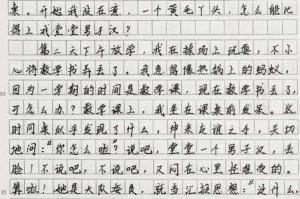 来，开始我没在意，一个黄毛丫头，怎么能比
得上我堂堂男子汉？
第二天下午放学，我在操场上玩要，不小
心将数学书弄丢了。我急得像热锅上的蚂蚁，
因为一学期的时间是数学课，现在数学书丢了，
可怎么办？数学课上，我坐在课桌前发呆。这
时同桌似乎发现了什么，伸来友谊之手，关切
地问：“你怎么啦？说吧，堂堂一个男子汉，丢
脸！不说吧，不说吧，又闷在心里怪难受的。
算啦！她是大队委员，就当汇报思想：“没什么，
15